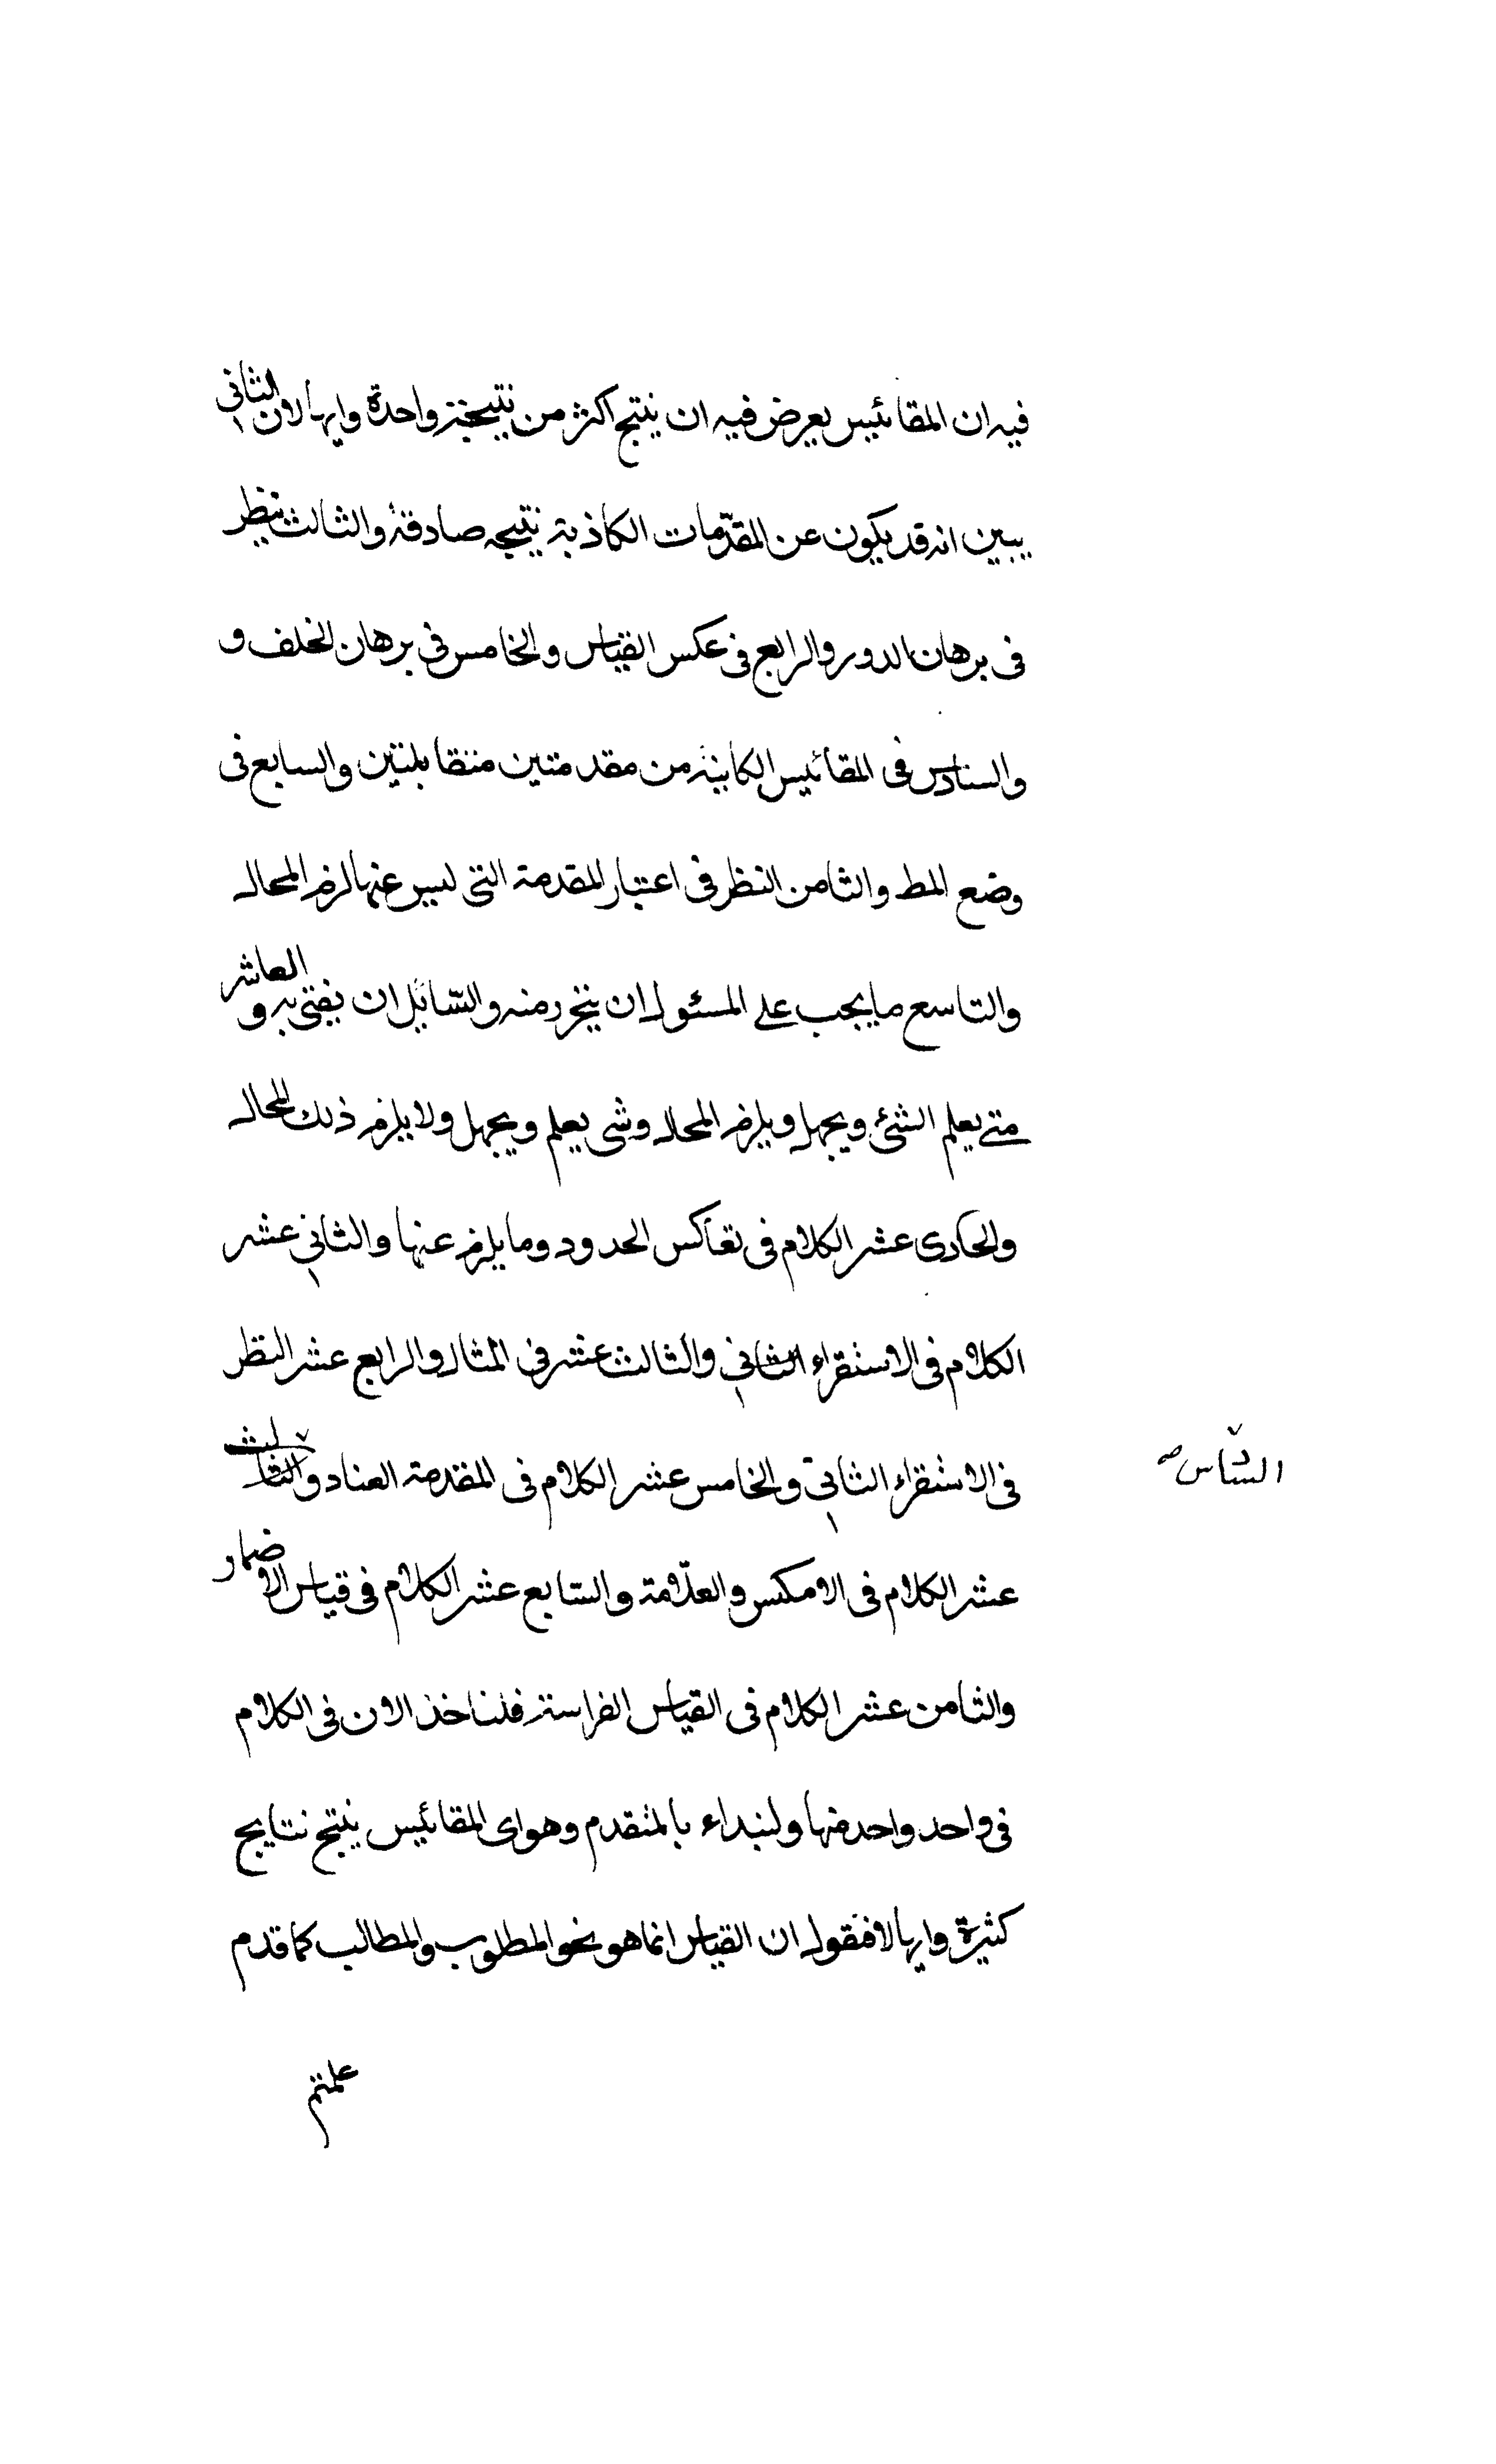 فيه ان المقائيس يعرض فيه ان ينتج اكثر من نتيجة واحدة وايها لان الثانى
يبين انه قد يكون عن المقدّمات الكاذبة نتيجه صادقة والثالث ينظر
فى برهان الدور والرابع فى عكس القياس والخامس فى برهان الخلف و
والسادس فى المقائيس الكاينة من مقدمتين متقابلتين والسابع فى
وضع المط والثامن النظر فى اعتبار المقدمة التى ليس عنها لزم المحال
والتاسع ما يجب على المسئول ان يتحرز منه والسّائل ان يفتى به و العاشر
متى يعلم الشئ ويجهل ويلزم المحال وشى يعلم ويجهل ولا يلزم ذلك المحال
والحادى عشر الكلام فى تعاكس الحدود وما يلزم عنها والثانى عشر
الكلام فى الاستقراء الثانى والثالث عشر فى المثال والرابع عشر النظر
فى الاستقراء الثانى والخامس عشر الكلام فى المقدمة العناد والثالث
السّادس صح
عشر الكلام فى الامكس والعلّامة والسّابع عشر الكلام فى قياس الاضمار
والثامن عشر الكلام فى القياس الفراسة فلناخذ الان فى الكلام
فى واحد واحد منها ولنبداء بالمتقدم وهو اى المقائيس ينتج نتايج
كثيرة وايها لا فنقول ان القياس انما هو نحو المطلوب والمطالب كما قدم
علمتم